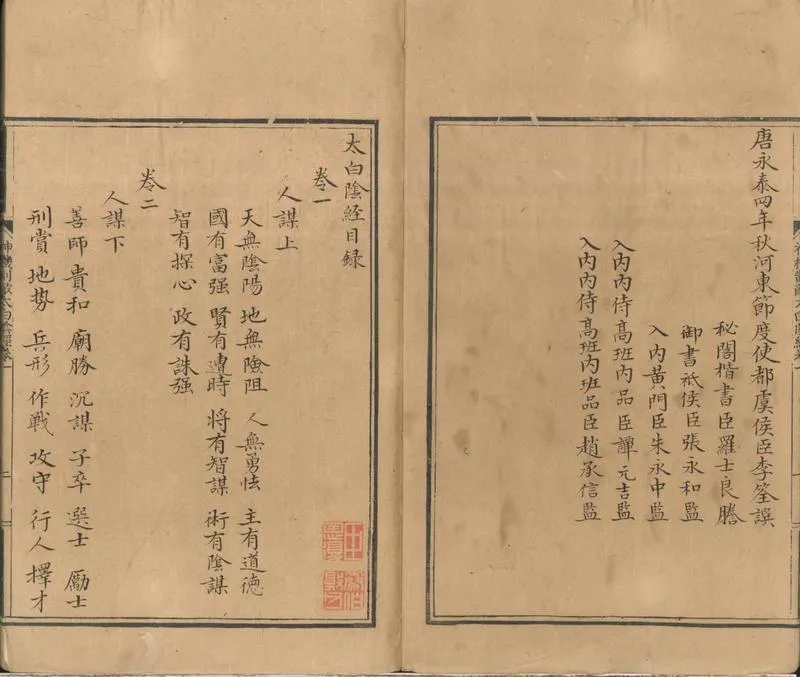 唐永泰四年秋河東節度使都虞侯臣李筌譔
秘閣楷書臣羅士良謄
御書祗侯臣張永和監
入內黃門臣朱永中監
入內內侍高班內品臣譚元吉監
入內內侍高班內班品臣趙承信監
太白陰経目録
卷一
人謀上
天無陰陽 地無險阻 人無勇怯 主有道德
國有富强 賢有遭時 将有智謀 術有陰謀
智有探心 政有誅强
卷二
人謀下
善師 貴和 廟勝 沉謀 子卒 選士 勵士
刑賞 地势 兵形 作戰 攻守 行人 擇才